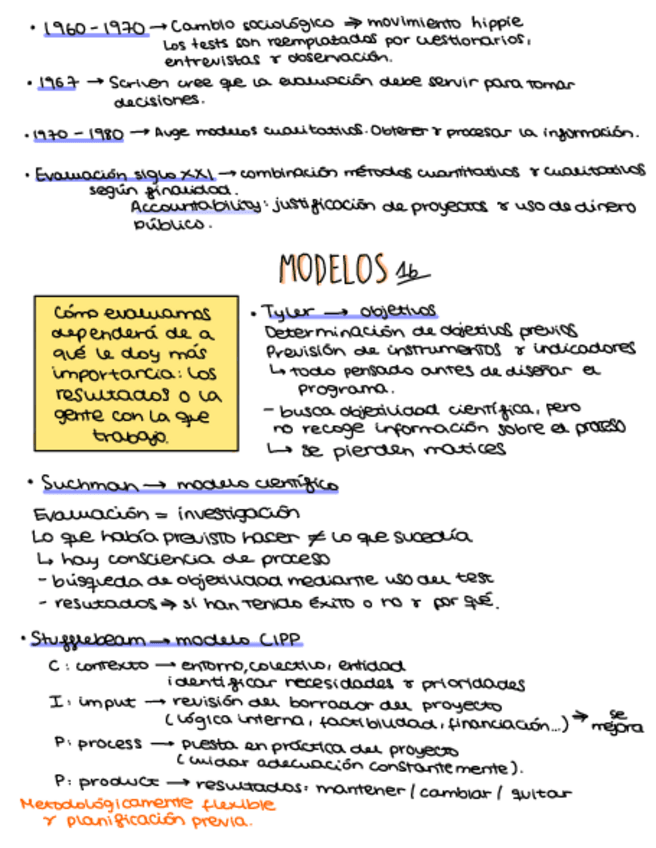 · 1960-1970 → Cambio sociológico ⇒ movimiento hippie
Los tests son reemplatados por cuestionarios,
entrevistas y observación.
· 1967 → Scriven cree que la evaluación debe servir para tomar
decisiones.
· 1970-1980 → Auge modelos cualitativos. Obtener y procesar la información.
· Evaluación siglo XXI → combinación métodos cuantitativos y cualitativos
según finalidad.
Accountability: justificación de proyectos y uso de dinero
público.
MODELOS 1b
Cómo evaluamos
dependerá de a
qué le doy más
importancia: los
resultados o la
gente con la que
trabajo.
· Tyler → objetivos
Determinación de objetivos previos
Previsión de instrumentos y indicadores
↳ todo pensado antes de diseñar el
programa.
- busca objetividad científica, pero
no recoge información sobre el proceso
↳ se pierden matices
· Suchman → modelo científico
Evaluación = investigación
Lo que había previsto hacer ≠ lo que sucedía
↳ hay consciencia de proceso
- búsqueda de objetividad mediante uso del test
- resutados ⇒ si han tenido éxito o no y por qué.
· Stufflebeam → modelo CIPP
C: contexto → entorno, colectivo, entidad
identificar necesidades y prioridades
I: imput → revisión del borrador del proyecto
(lógica interna, factibilidad, financiación...) ⇒ se mejora
P: process → puesta en práctica del proyecto
(cuidar adecuación constantemente).
P: product → resultados: mantener / cambiar / quitar
Metodológicamente flexible
y planificación previa.